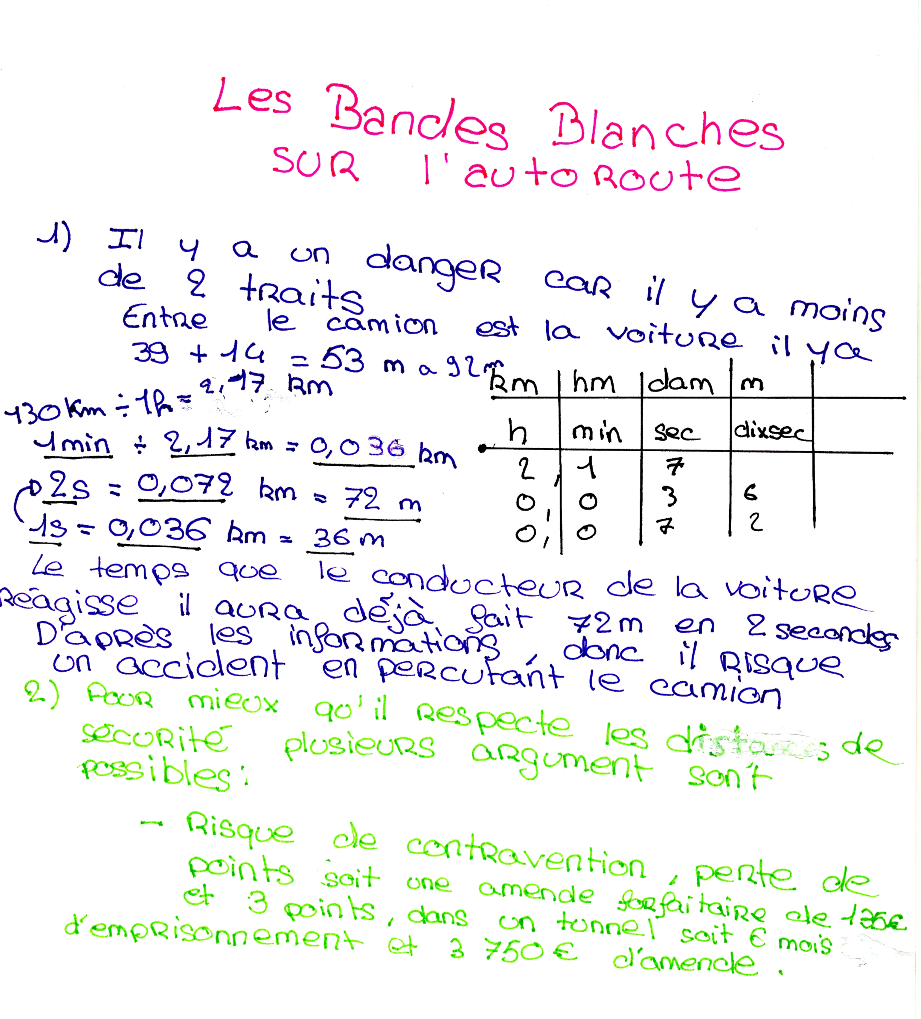 Les Bandes Blanches
SUR l'autoroute
1) Il y a un danger car il y a moins
de 2 traits
Entre le camion est la voiture il y a
39 + 14 = 53 m a 92m
130 Km ÷ 1h = 2,17 km
1min ÷ 2,17 km = 0,036 km
2s = 0,072 km = 72 m
1s = 0,036 km = 36 m
km hm dam m
h min sec dixsec
2, 1 7
0, 0 3 6
0, 0 7 2
Le temps que le conducteur de la voiture
Réagisse il aura déjà fait 72m en 2 secondes
D'après les informations, donc il risque
un accident en percutant le camion
2) Pour mieux qu'il respecte les distances de
sécurité plusieurs argument sont
possibles :
- Risque de contravention, perte de
points soit une amende forfaitaire de 135€
et 3 points, dans un tunnel soit 6 mois
d'emprisonnement et 3 750 € d'amende.